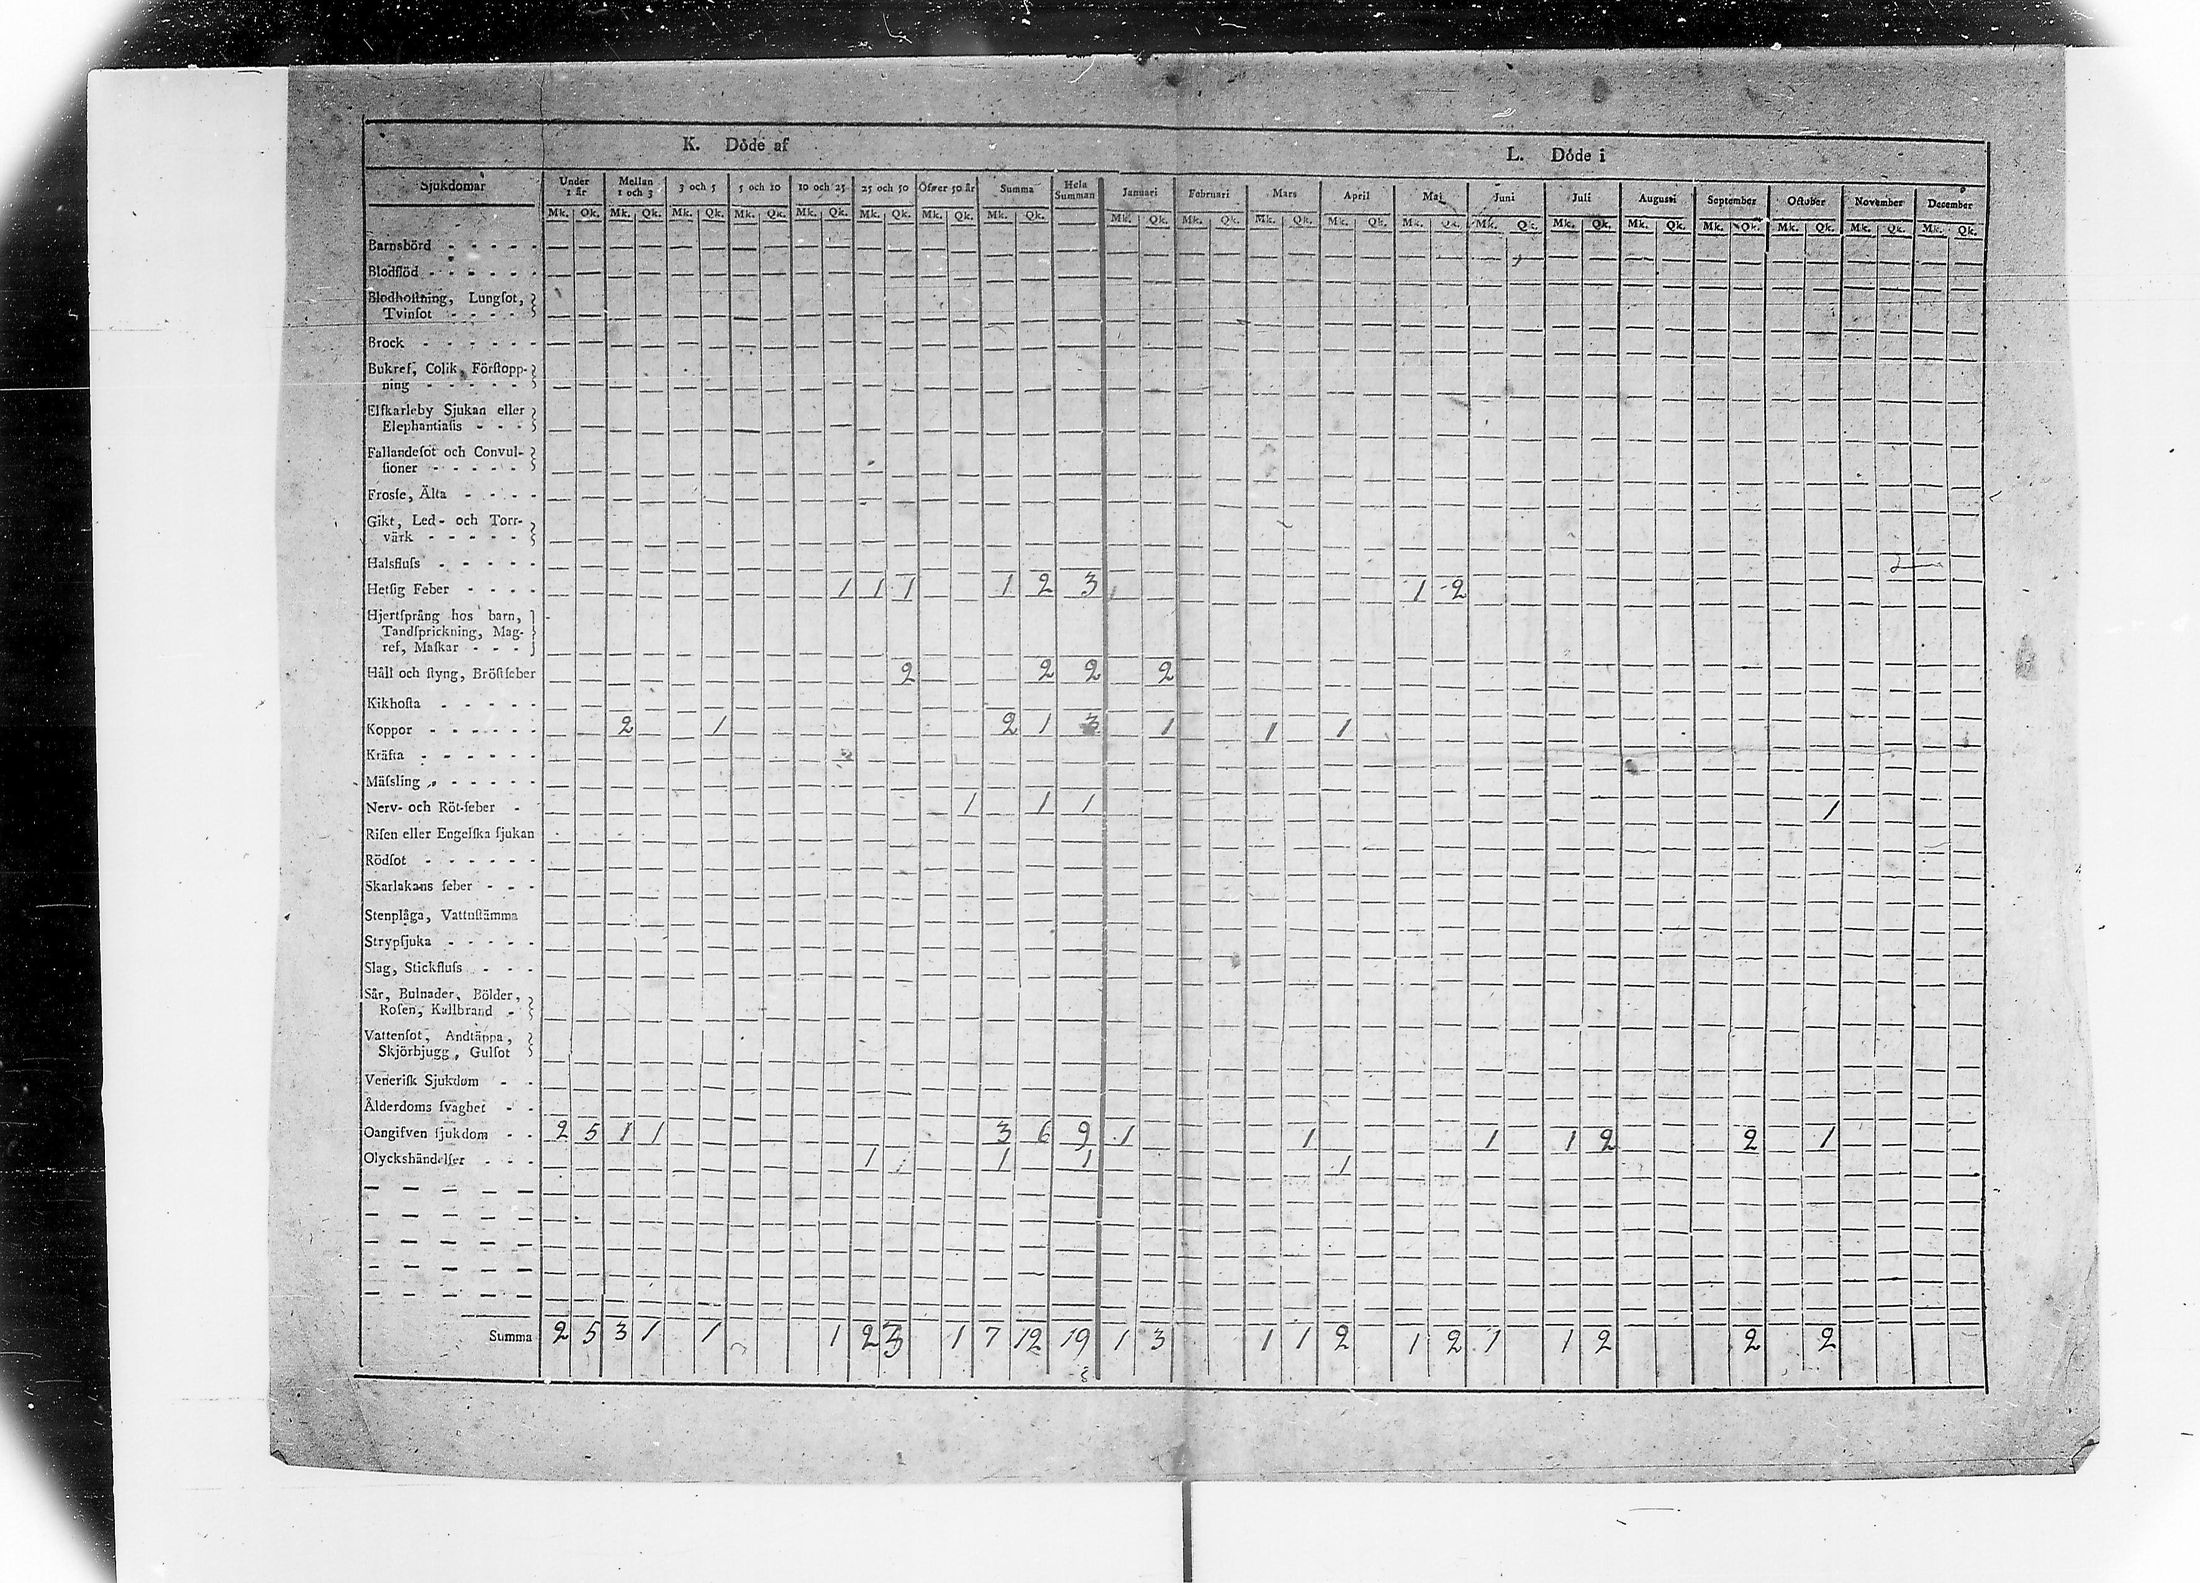 K. Döde af L. Döde i
Sjukdomar Under 1 år Mellan 1 och 3 3 och 5 5 och 10 10 och 25 25 och 50 Öfver 50 år Summa Hela Summan Januari Februari Mars April Maj Juni Juli Augusti September October November December
Mk. Qk. Mk. Qk. Mk. Qk. Mk. Qk. Mk. Qk. Mk. Qk. Mk. Qk. Mk. Qk. Mk. Qk. Mk. Qk. Mk. Qk. Mk. Qk. Mk. Qk. Mk. Qk. Mk. Qk. Mk. Qk. Mk. Qk. Mk. Qk. Mk. Qk. Mk. Qk.
Barnsbörd - - - - -
Blodflöd - - - - - -
Blodhoſtning, Lungſot,
Tvinſot - - - -
Brock - - - - - -
Bukref, Colik, Förſtopp-
ning - - - - -
Elfkarleby Sjukan eller
Elephantiaſis - - -
Fallandeſot och Convul-
ſioner - - - - -
Frosſe, Älta - - - -
Gikt, Led- och Torr-
värk - - - - -
Halsfluſs - - - - -
Hetſig Feber - - - - 1 1 1 1 2 3 1 2
Hjertſprång hos barn,
Tandſprickning, Mag-
ref, Maſkar - - -
Håll och ſtyng, Bröſtfeber 2 2 2 2
Kikhoſta - - - - -
Koppor - - - - - - 2 1 2 1 3 1 1 1
Kräfta - - - - - -
Mäſsling - - - - -
Nerv- och Röt-feber - 1 1 1 1
Riſen eller Engelſka ſjukan
Rödſot - - - - - -
Skarlakans feber - - -
Stenplåga, Vattuſtämma
Strypſjuka - - - - -
Slag, Stickfluſs - - -
Sår, Bulnader, Bölder,
Roſen, Kallbrand -
Vattenſot, Andtäppa,
Skjörbjugg, Gulſot
Veneriſk Sjukdom - -
Ålderdoms ſvaghet - -
Oangifven ſjukdom - - 2 5 1 1 3 6 9 1 1 1 1 2 2 1
Olyckshändelſer - - - 1 1 1 1
Summa 2 5 3 1 1 1 2 3 1 7 12 19 1 3 1 1 2 1 2 1 1 2 2 2